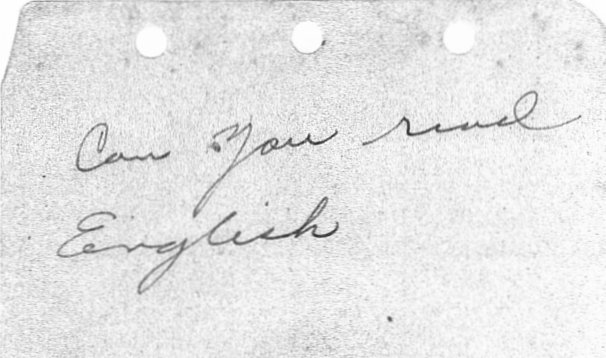 Can You read
English